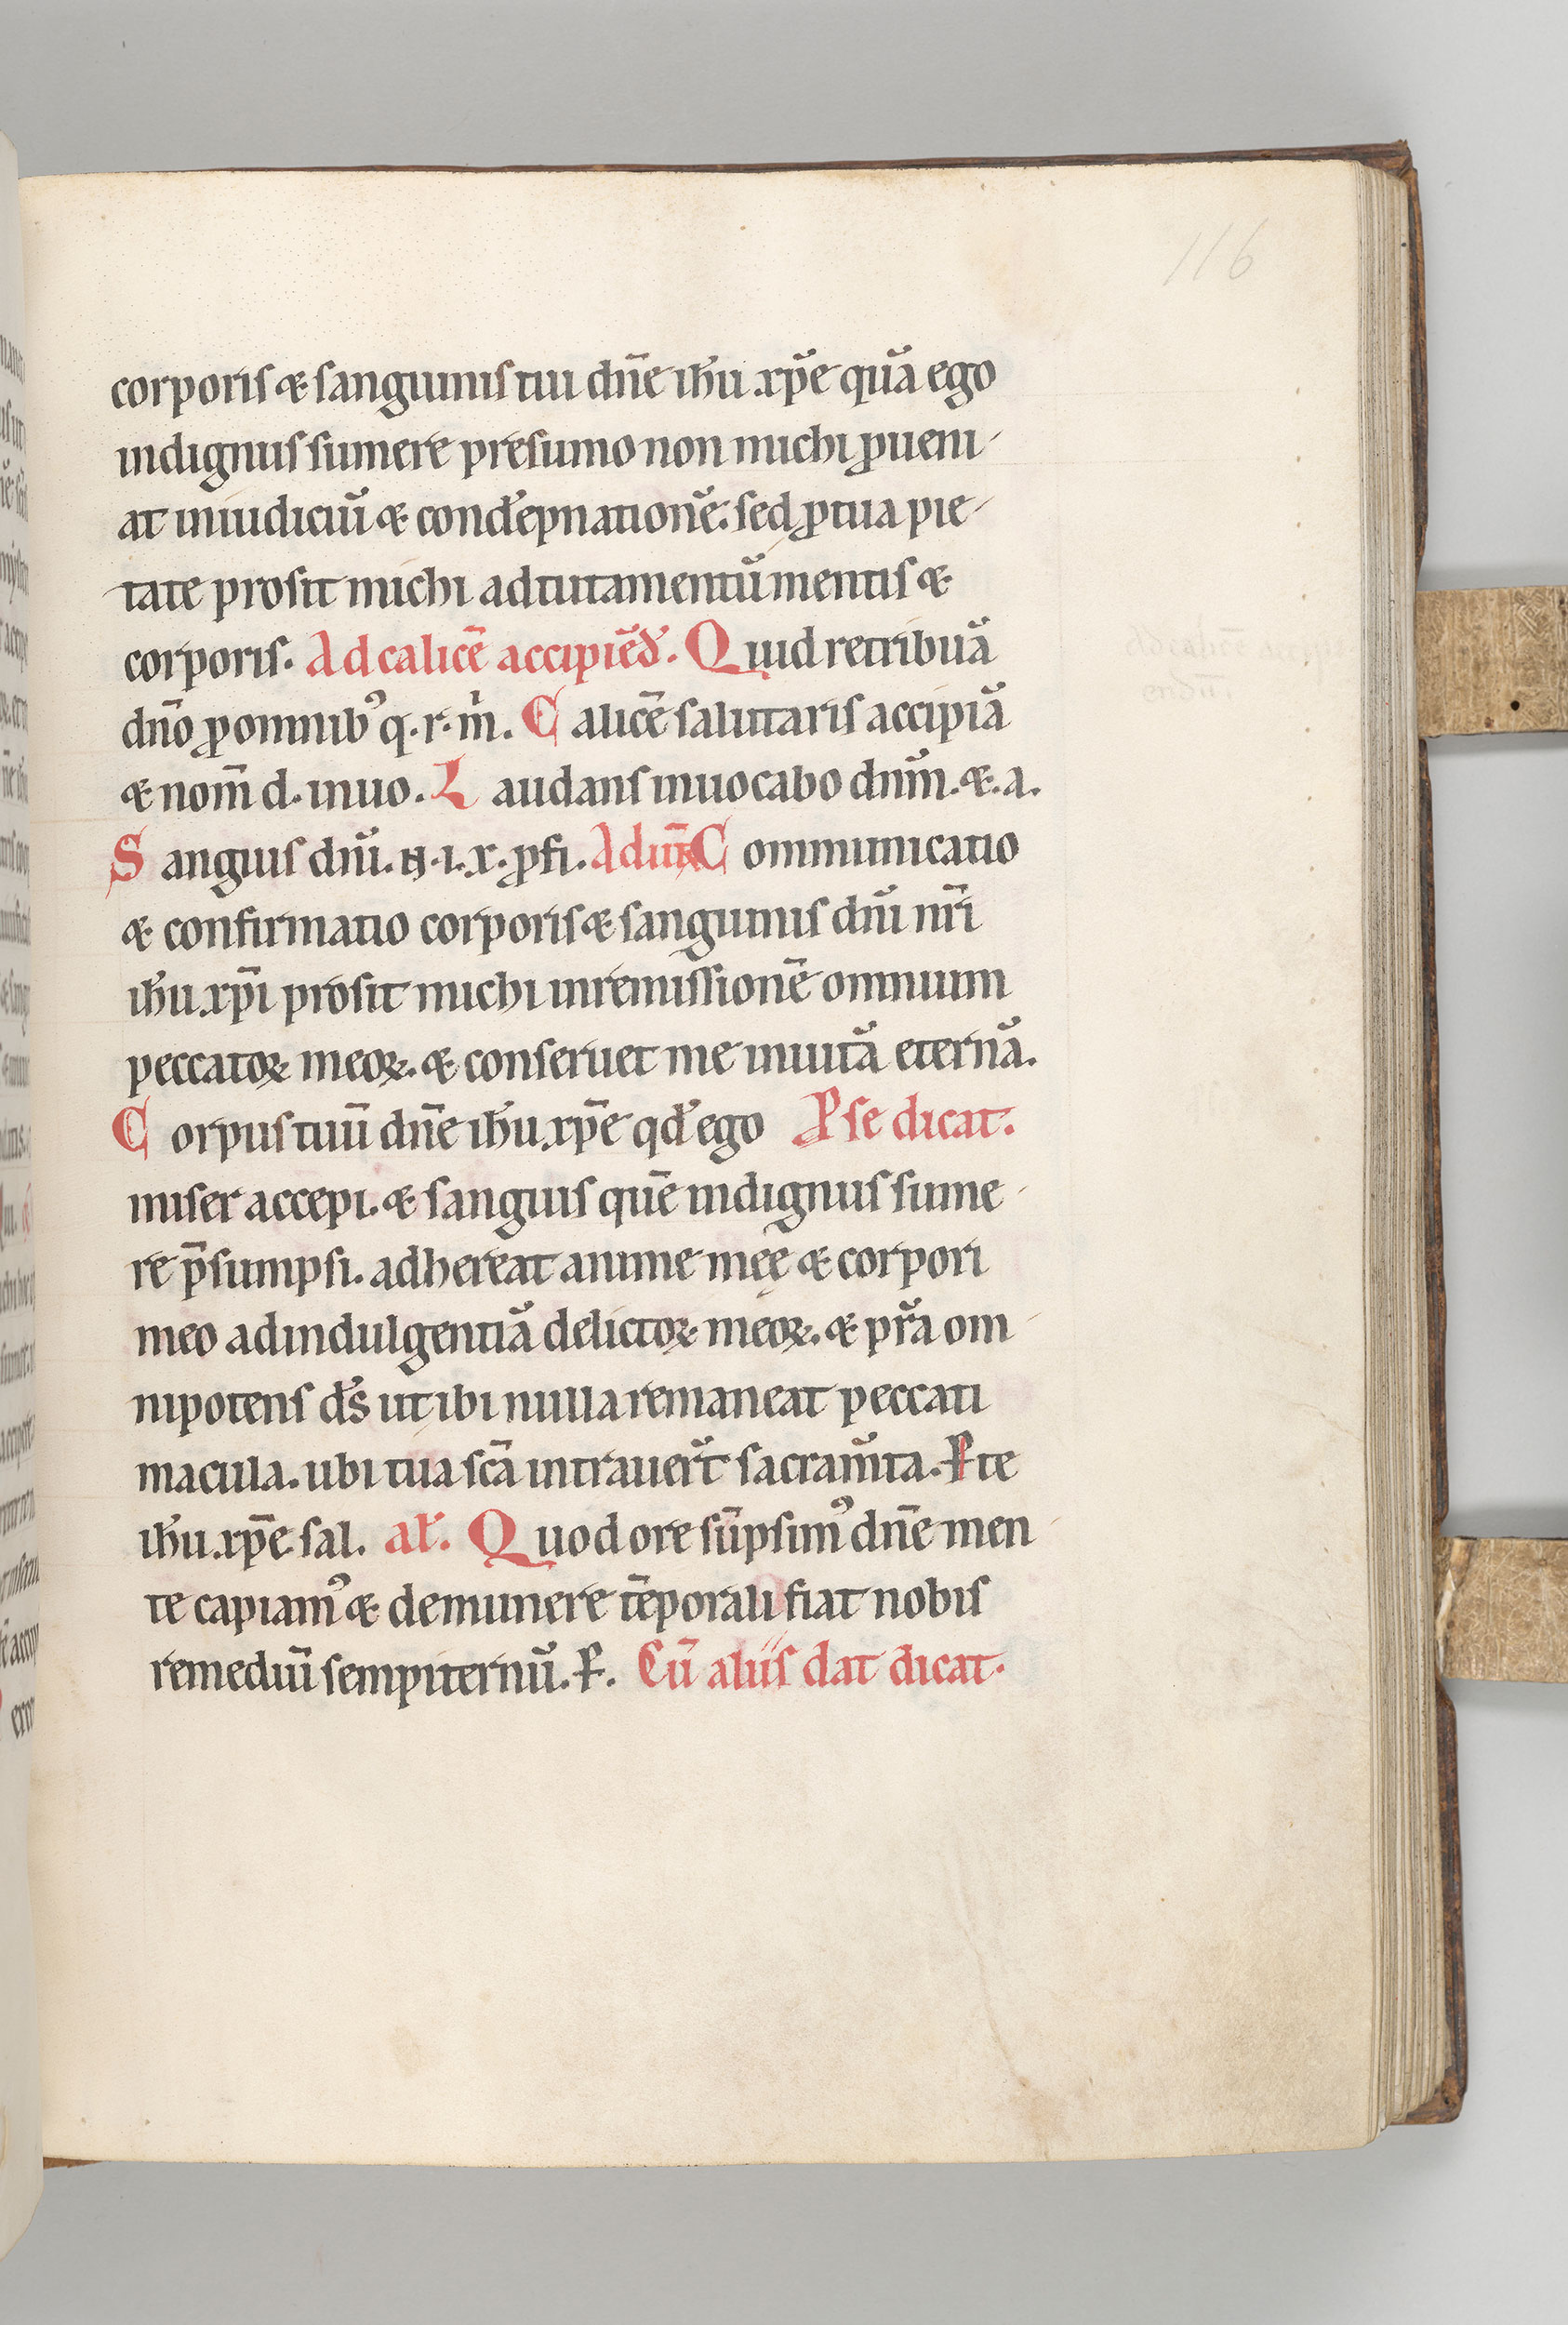 116
corporis & sanguinis tui dn̄e ih̄u xp̄e quā ego
indignus sumere presumo non michi ꝓueni-
at iniudiciū & condēpnationē. sed ꝓ tua pie-
tate prosit michi ad tutamentū mentis &
corporis. Ad calicē accipiēd̄. Quid retribuā
dn̄o ꝓ omnibꝰ q. r. m̄. Calicē salutaris accipiā
& nom̄ d. inuo. Laudans inuocabo dn̄m. &. a.
Sanguis dn̄i. n. i. x. ꝓfi. Communicatio
& confirmatio corporis & sanguinis dn̄i nr̄i
ih̄u xp̄i prosit michi inremissionē omnium
peccatoꝝ meoꝝ. & conseruet me inuitā eternā.
Corpus tuū dn̄e ih̄u xp̄e qd̄ ego P̱ se dicat.
miser accepi. & sanguis quē indignus sume-
re p̄sumpsi. adhereat anime meę & corpori
meo ad indulgentiā delictoꝝ meoꝝ. & pr̄a om-
nipotens d̄s ut ibi nulla remaneat peccati
macula. ubi tua sc̄a intrauer̄t sacram̄ta. P te
ih̄u xp̄e sal. al̄. Quod ore sūpsimꝰ dn̄e men-
te capiamꝰ & de munere tēporali fiat nobis
remediū sempiternū. P. Cū aliis dat dicat.